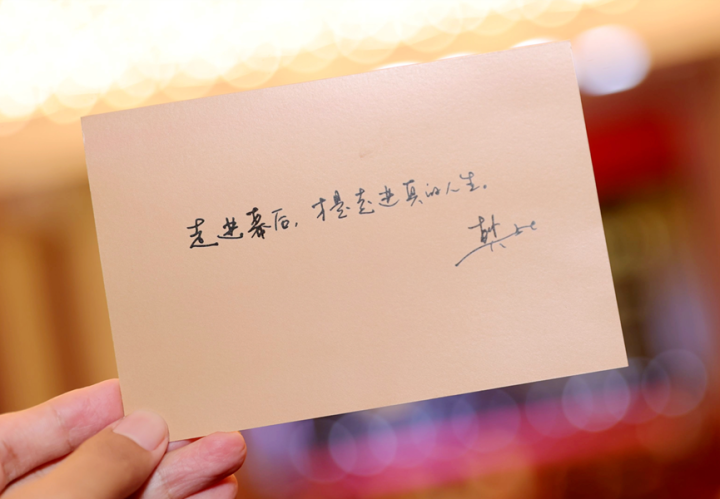 走进幕后，才是走进真的人生。